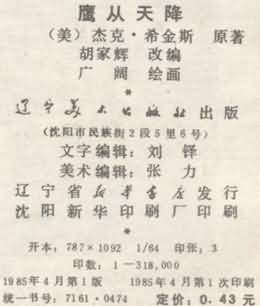 鹰从天降
（美）杰克·希金斯 原著
胡家辉 改编
广阔 绘画
*
辽宁美术出版社出版
（沈阳市民族街2段5里6号）
文字编辑：刘铎
美术编辑：张力
辽宁省新华书店发行
沈阳新华印刷厂印刷
*
开本：787×1092 1/64 印张：3
印数：1—318,000
1985年4月第1版 1985年4月第1次印刷
统一书号：7161·0474 定价：0.43元